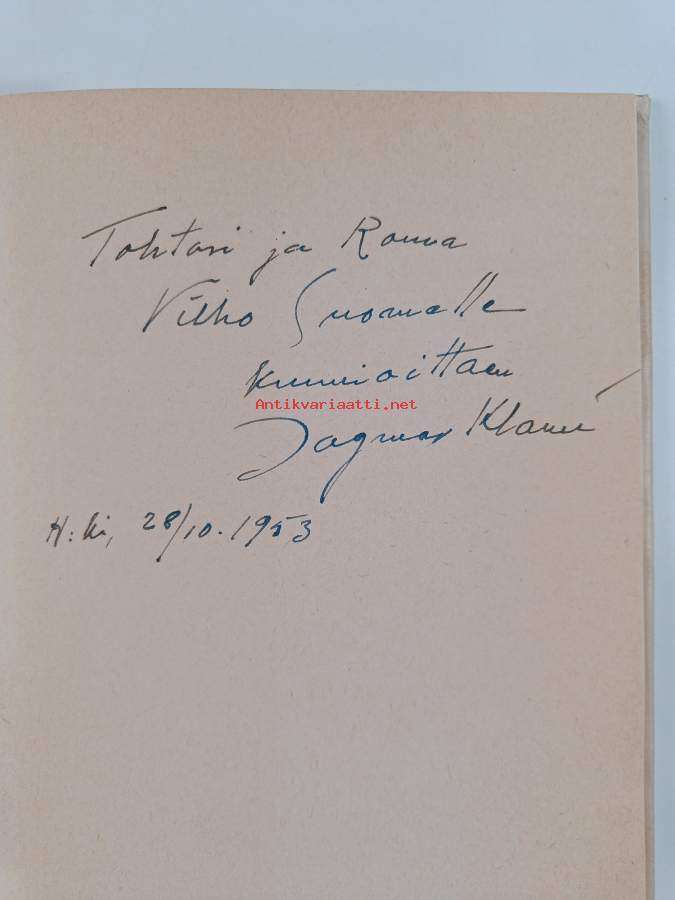 Tohtori ja Rouva
Vilho Suomelle
kunnioittaen
Antikvariaatti.net
Dagmar Klamé
H:ki, 28/10.1953